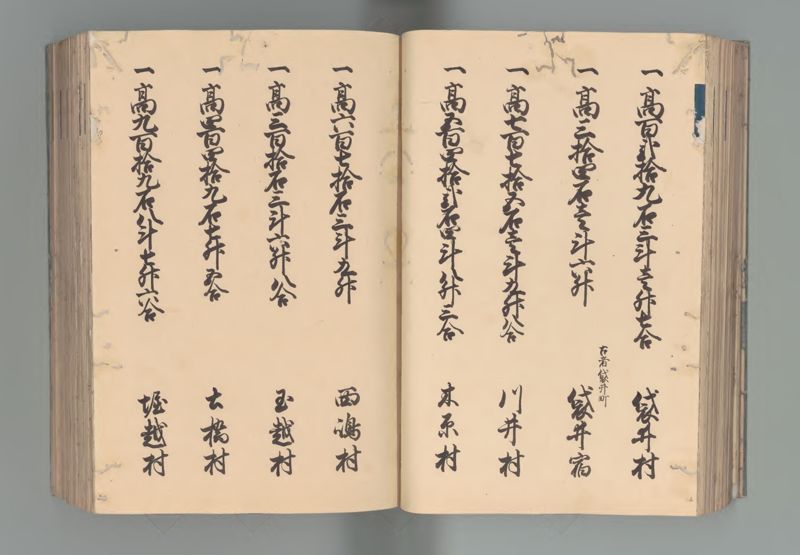 一高百弐拾九石三斗壱升七合 袋井村
一高三拾四石壱斗六升 古者袋井町 袋井宿
一高七百七拾五石壱斗九升八合 川井村
一高五百四拾弐石四斗八升三合 木原村
一高六百七拾石三斗九升 西嶋村
一高三百拾石三斗六升八合 玉越村
一高四百四拾九石七升五合 大橋村
一高九百拾九石八斗七升六合 堀越村